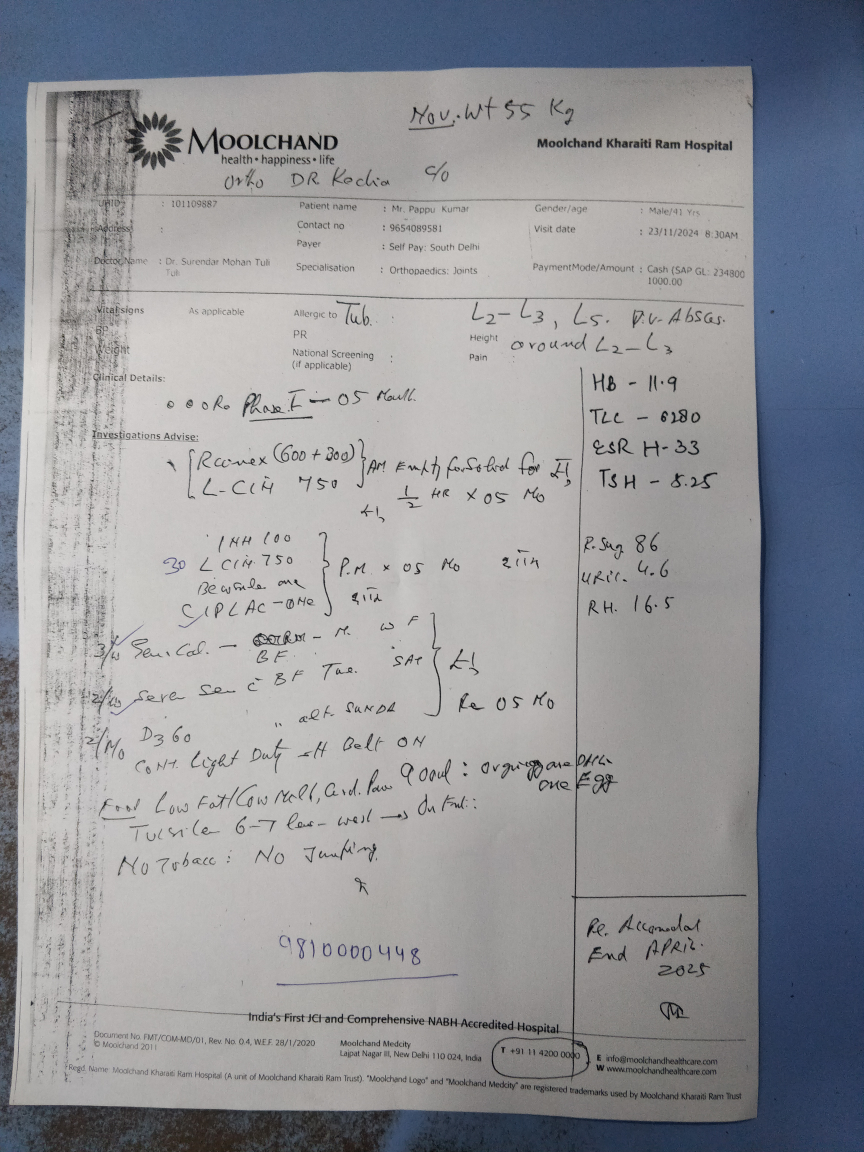 Nov. Wt 55 Kg
MOOLCHAND
health • happiness • life
Moolchand Kharaiti Ram Hospital
Ortho DR. Kochia c/o
UHID : 101109887 Patient name : Mr. Pappu Kumar Gender/age : Male/41 Yrs
Address : Contact no : 9654089581 Visit date : 23/11/2024 8:30AM
Payer : Self Pay: South Delhi
Doctor Name : Dr. Surendar Mohan Tuli Specialisation : Orthopaedics: Joints PaymentMode/Amount : Cash (SAP GL: 234800
Tuli 1000.00
Vital signs As applicable Allergic to Tub. : L2-L3, L5. P.V. Absces.
BP PR Height around L2-L3
Weight National Screening : Pain :
(if applicable)
Clinical Details:
HB - 11.9
Phase I - 05 Month
TLC - 6280
Investigations Advise:
ESR H-33
(600 + 300) AM Empty for
TSH - 5.25
L-CIN 750 1/2 HR × 05 Mo
INH 100
R. Sug 86
30 L CIN 750 P.M. × 05 Mo
URIC. 4.6
one
RH. 16.5
CIPLAC-ONE
3/w Cal. - M. W F
BF
2/w Seven Sea c BF Tue. SAT
Re 05 Mo
2/Mo D3 60 " alt. SUNDA
CONT. Light Duty Belt ON
Food Low Fat/Cow Milk, : one
one Egg
6-7
No Tobacc: No Jumping
9810000448
Re.
End APRIL.
2025
India's First JCI and Comprehensive NABH Accredited Hospital
Document No. FMT/COM-MD/01, Rev. No. 0.4, W.E.F. 28/1/2020
© Moolchand 2011
Moolchand Medcity
Lajpat Nagar III, New Delhi 110 024, India
T +91 11 4200 0000
E info@moolchandhealthcare.com
W www.moolchandhealthcare.com
Regd. Name: Moolchand Kharaiti Ram Hospital (A unit of Moolchand Kharaiti Ram Trust). "Moolchand Logo" and "Moolchand Medcity" are registered trademarks used by Moolchand Kharaiti Ram Trust